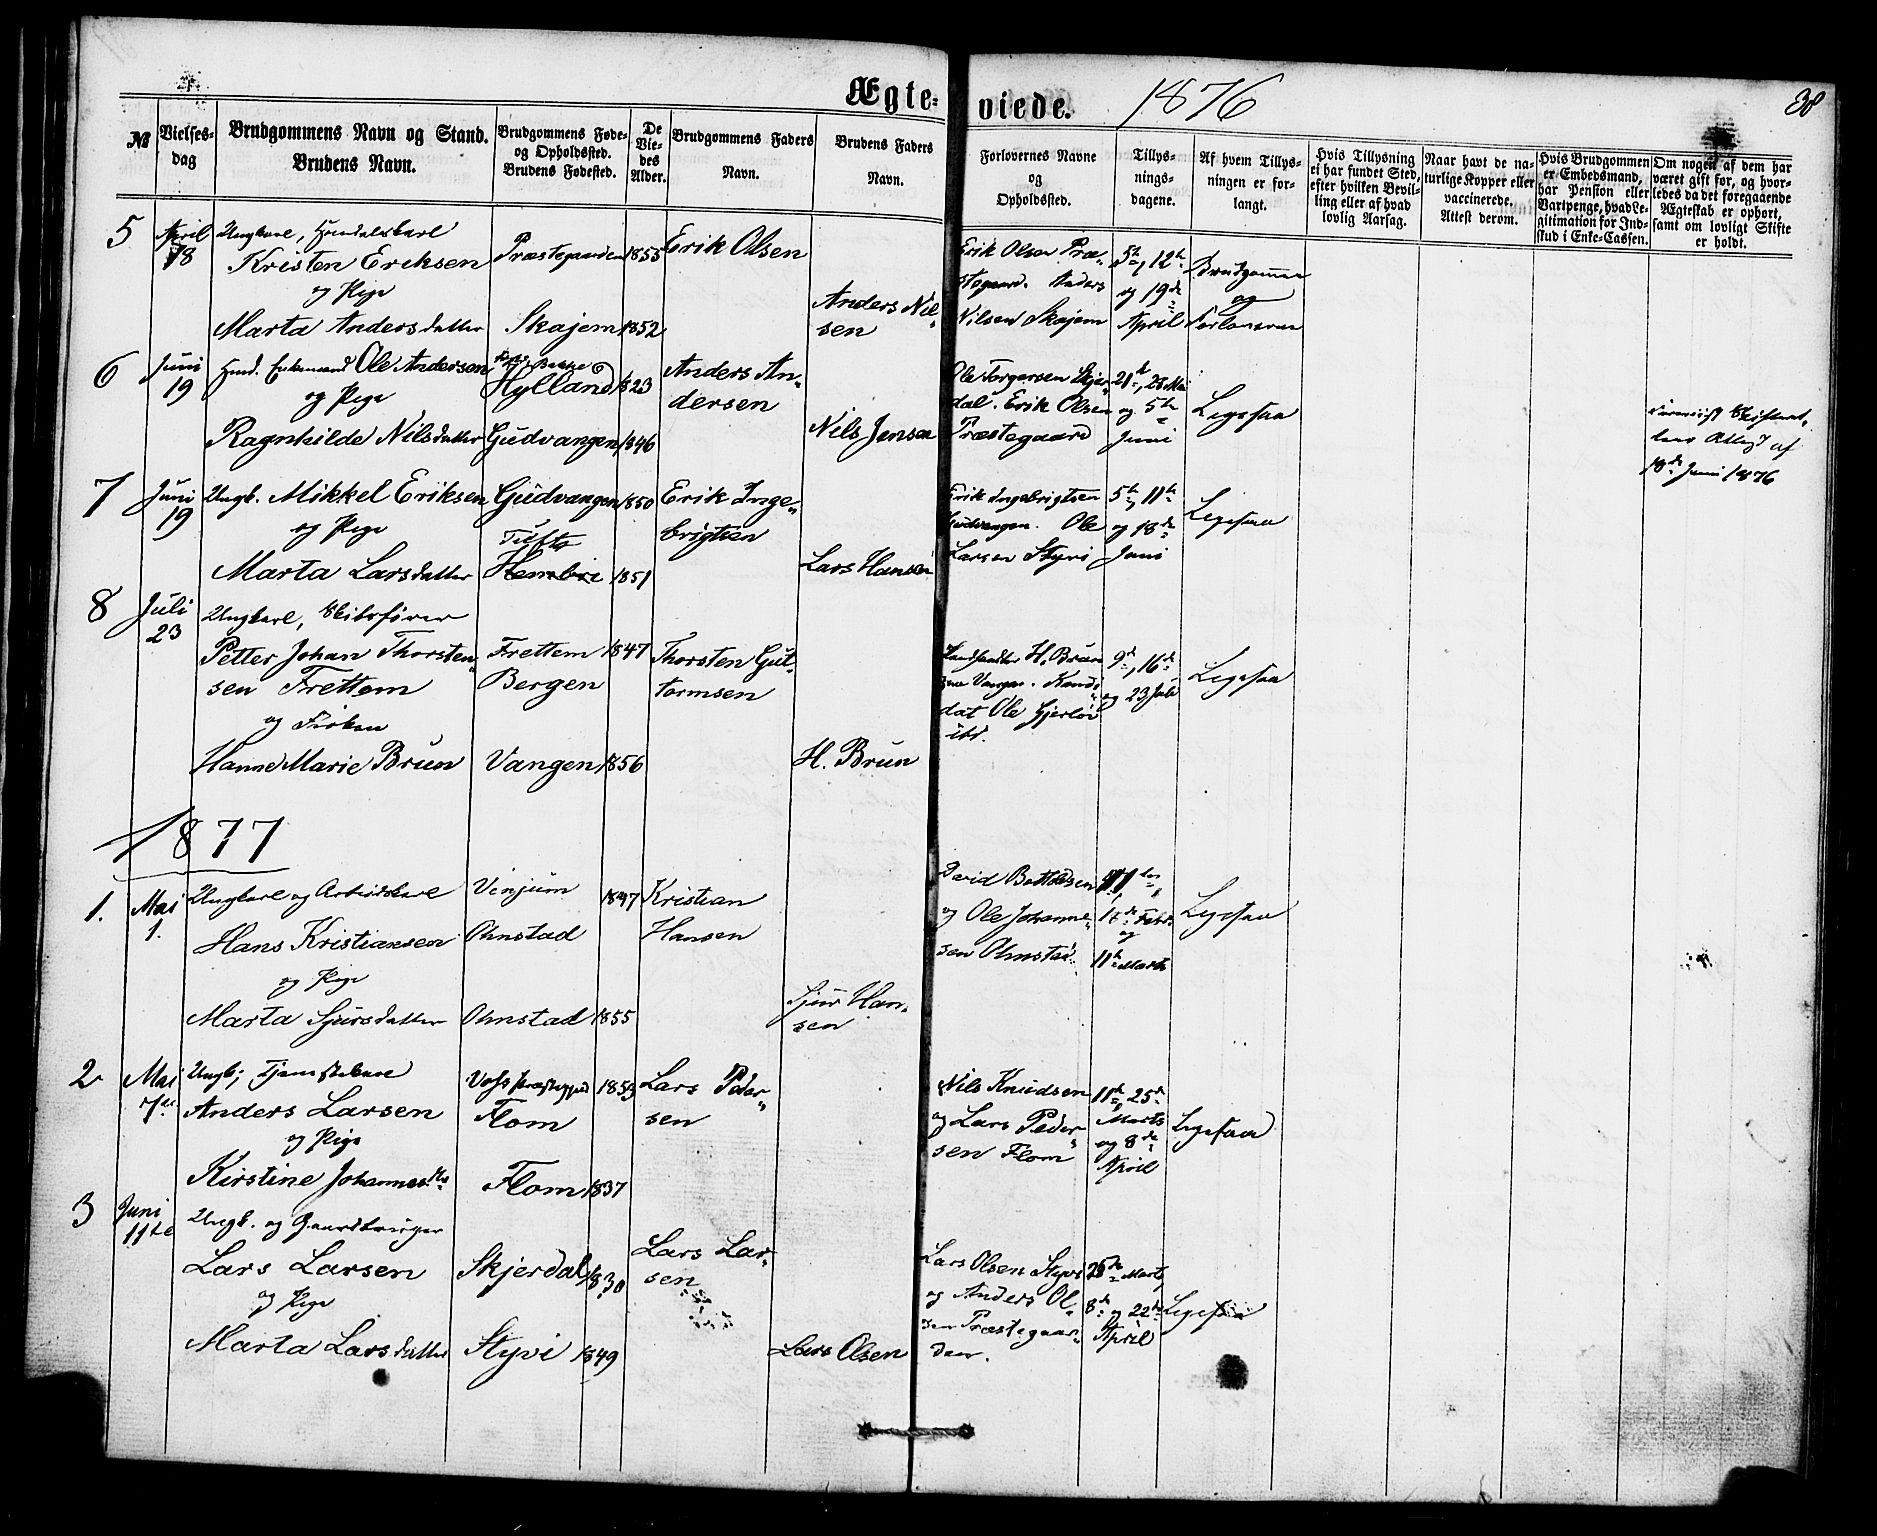 Ægte-
viede. 1876
38
№
Vielses-
dag
Brudgommens Navn og Stand.
Brudens Navn.
Brudgommens Føde-
og Opholdssted.
Brudens Fødested.
De
Vie-
des
Alder.
Brudgommens Faders
Navn.
Brudens Faders
Navn.
Forlovernes Navne
og
Opholdssted.
Tillys-
nings-
dagene.
Af hvem Tillys-
ningen er for-
langt.
Hvis Tillysning
ei har fundet Sted,
efter hvilken Bevil-
ling eller af hvad
lovlig Aarsag.
Naar havt de na-
turlige Kopper eller
vaccinerede.
Attest derom.
Hvis Brudgommen
er Embedsmand,
har Pension eller
Vartpenge, hvad Le-
gitimation for Ind-
skud i Enke-Cassen.
Om nogen af dem har
været gift før, og hvor-
ledes da det foregaaende
Ægteskab er ophørt,
samt om lovligt Skifte
er holdt.
5
April
18
Ungkarl,
Kristen Eriksen
og Pige
Marta Andersdatter
Præstegaarden
Skajem
1855
1852
Erik Olsen
Anders Nil-
sen
Erik Olsen Præ-
stegaard. Anders
Nilsen Skajem
5te, 12te
og 19de
April
Brudgommen
og
Forloveren
6
Juni
19
Enkemand Ole Andersen
og Pige
Ragnhilde Nilsdatter
Bakke
Hylland
Gudvangen
1823
1846
Anders An-
dersen
Nils Jensen
Ole Torgersen Skjer-
dal. Erik Olsen
Præstegaard
21de, 28 Mai
og 5te
Juni
Ligesaa
Attest af
18de Juni 1876
7
Juni
19
Ungk. Mikkel Eriksen
og Pige
Marta Larsdatter
Gudvangen
Tufto
Hembre
1850
1851
Erik Inge-
brigtsen
Lars Hansen
Erik Ingebrigtsen
Gudvangen. Ole
Larsen Styvi
5te, 11te
og 18de
Juni
Ligesaa
8
Juli
23
Ungkarl, Skibsfører
Petter Johan Thorsten-
sen Frettem
og Frøken
Hanne Marie Brun
Frettem
Bergen
Vangen
1847
1856
Thorsten Gut-
tormsen
H. Brun
Landhandler H. Brun
Vangen. Kandi-
dat Ole Gjerløv
ibd.
9de, 16de
og 23 Juli
Ligesaa
1877
1.
Mai
1.
Ungkarl og Arbeidskarl
Hans Kristiansen
og Pige
Marta Sjursdatter
Vinjum
Ohnstad
Ohnstad
1847
1855
Kristian
Hansen
Sjur Han-
sen
David Bottolvsen
og Ole Johanne-
sen Ohnstad.
Febr.
og
11te Marts
Ligesaa
2
Mai
7de
Ungk; Tjenestekarl
Anders Larsen
og Pige
Kirstine Johannesdtr
Voss Præstegjæld
Flom
Flom
1853
1837
Lars Peder-
sen
Nils Knudsen
og Lars Peder-
sen Flom
11te, 25de
Marts
og 8de
April
Ligesaa
3
Juni
11te
Ungk. og Gaardbruger
Lars Larsen
og Pige
Marta Larsdatter
Skjerdal
Styvi
1830
1849
Lars Lar-
sen
Lars Olsen
Lars Olsen Styvi
og Anders Ol-
sen Præstegaar-
den.
25de Marts,
8de og 22de
April
Ligesaa